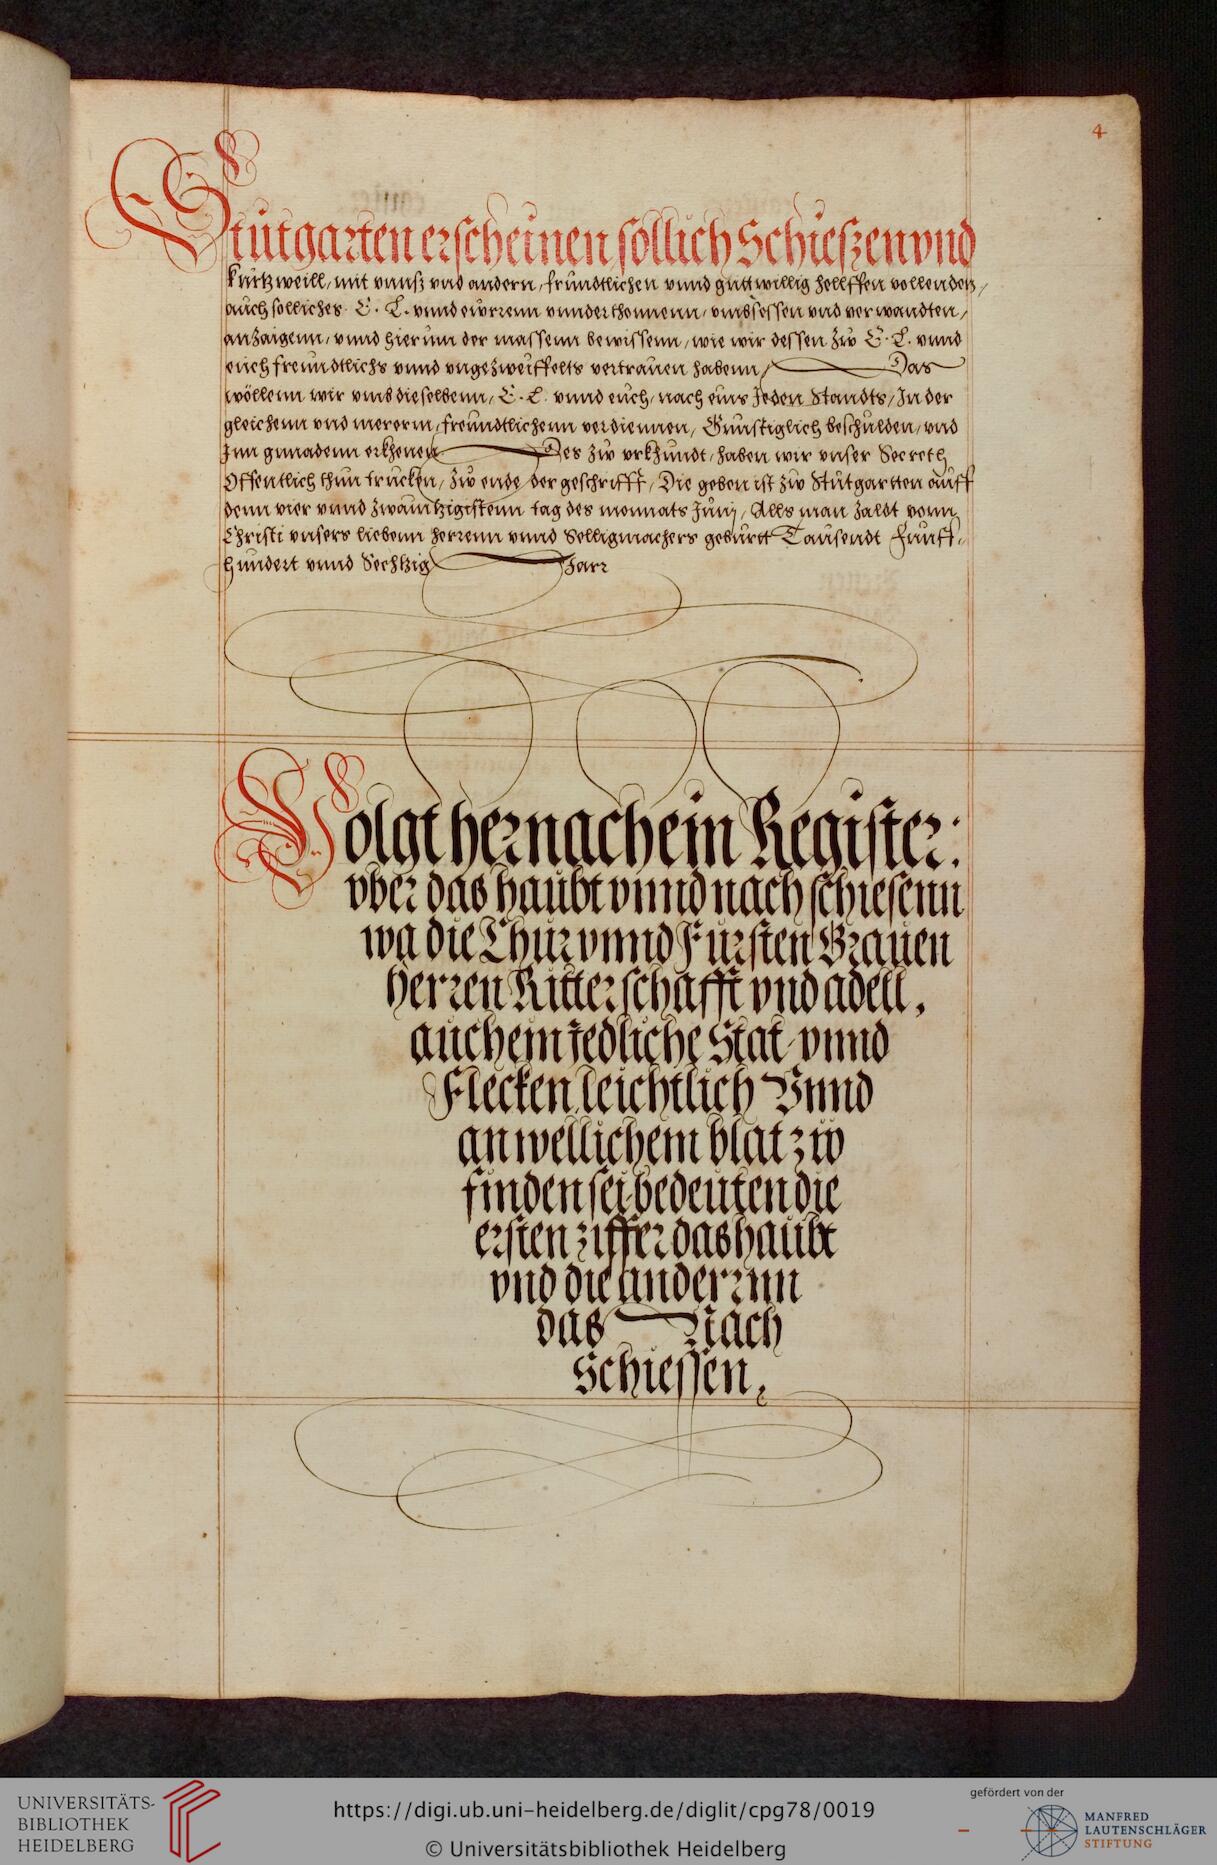 4
Stutgarten erscheinen söllich Schieszen vnd
kurtzweill, mit vnnß vnd andern, frŭndtlichen vnnd gŭttwillig hellffen vollenden,
auch solliches E. L. vnnd eŭwrenn vnnderthonnenn, vmbsessen vnd verwandten,
anzaigenn, vnnd hierŭn der massenn bewissenn, wie wir dessen zŭw E. L. vnnd
eŭch freŭndtlichs vnnd vngezweiffelts vertraŭen habenn, Das
wöllenn wir vmb dieselbenn, E. L. vnnd eŭch, nach eins Jeden Standts, In der
gleichenn vnd mererm, freŭndtlichenn verdiennen, Gŭnstiglich beschŭlden, vnd
Inn gnnadenn erkhenen Des zŭw vrkhŭndt, haben wir vnser Secreth
Offentlich thun trucken, zŭw ende der geschrifft, Die geben ist zŭw Stŭtgartten aŭff
denn vier vnnd zwaintzigistenn tag des monnats Jŭnij, Alls man zaldt vonn
Christi vnsers liebenn herrenn vnnd Selligmachers gebŭrtt Taŭsendt Fŭnff-
hŭndert vnnd Sechtzig Jarr
Volgt hernach ein Register:
vber das haŭbt vnnd nach schiesenn
wa die Chŭr vnnd Fŭrsten Graŭen
herren Ritterschafft vnd adell,
aŭch ein jedliche Stat vnnd
Flecken leichtlich Vnnd
an wellichem blat zŭw
finden sei bedeŭten die
ersten ziffer das haŭbt
vnd die anderrnn
das Nach
Schiessen,
UNIVERSITÄTS-
BIBLIOTHEK
HEIDELBERG
https://digi.ub.uni-heidelberg.de/diglit/cpg78/0019
© Universitätsbibliothek Heidelberg
gefördert von der
MANFRED
LAUTENSCHLÄGER
STIFTUNG